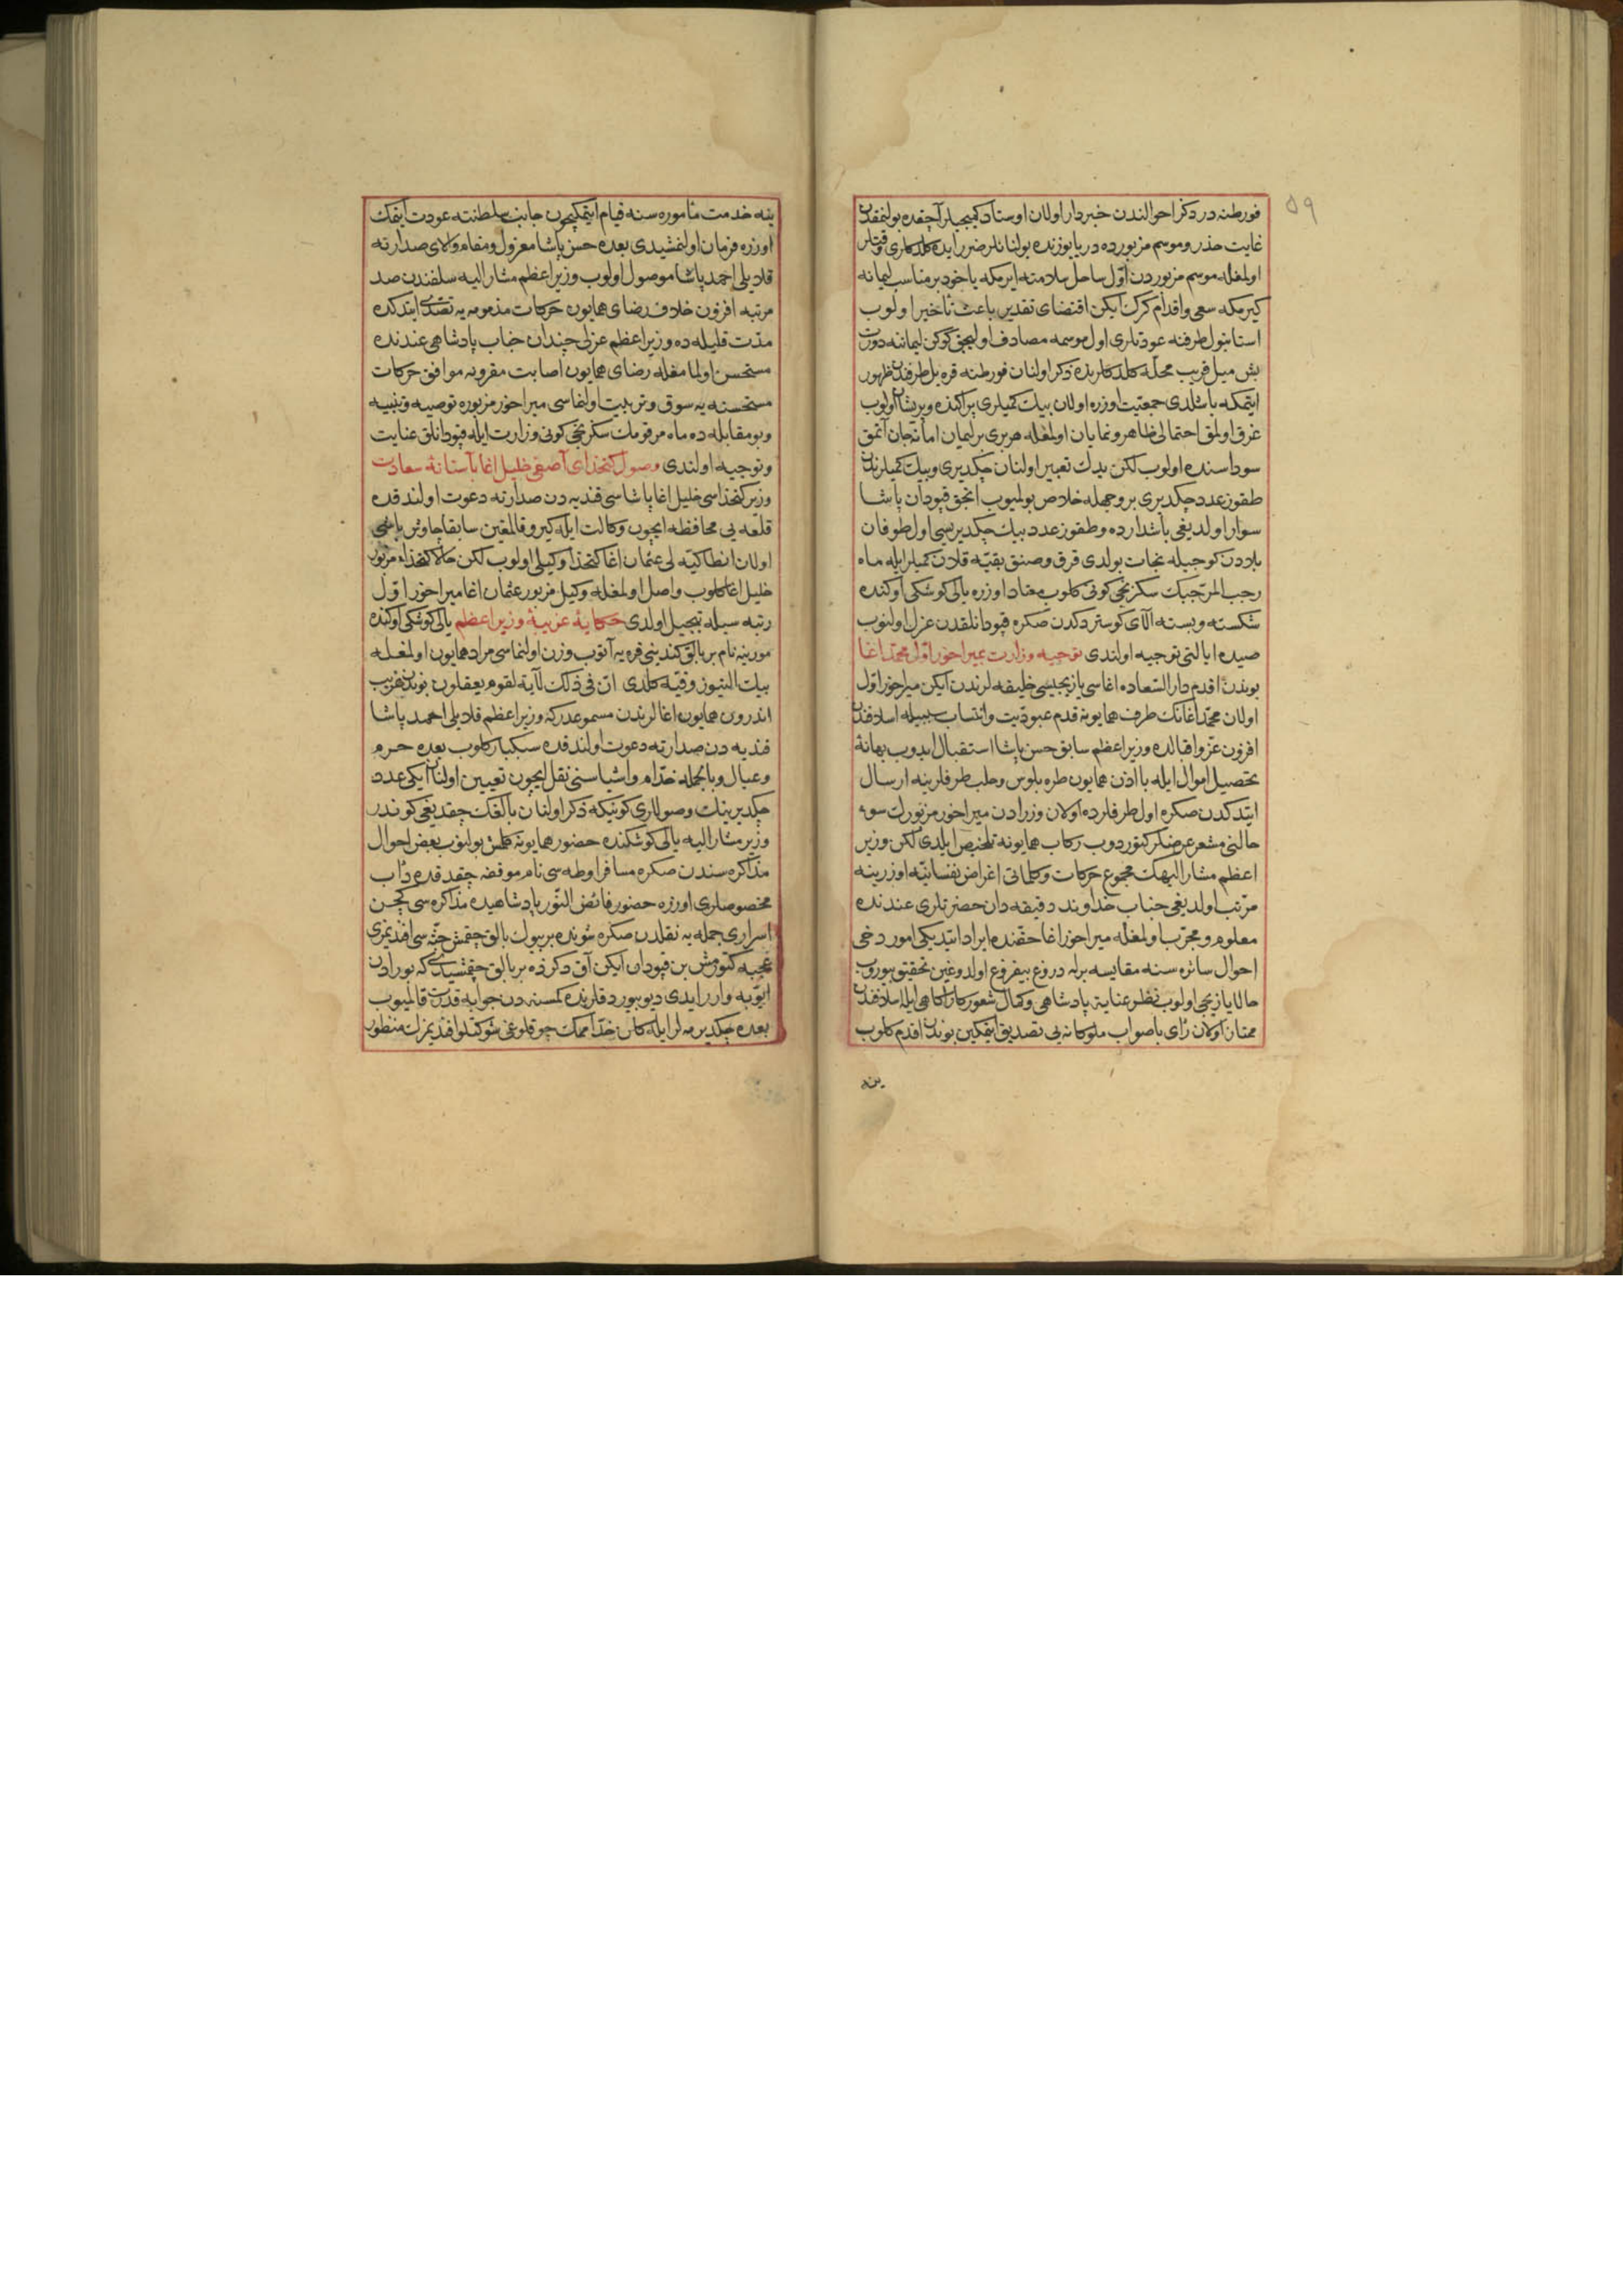 ٥٩
فورطنه در دكز احوالندن خبردار اولان اوستاد كميجيلر آچقده بولنمقدن
غايت حذر و موسم مزبورده دريا يوزنده بولنانلر ضرر ايده كلدكلرى وقتلر
اولمغله موسم مزبوردن اول ساحل سلامته ايرمكه ياخود بر مناسب ليمانه
كيرمكه سعى و اقدام كرك ايكن اقتضاى تقدير باعث تأخير اولوب
استانبول طرفنه عودتلرى اول موسمه مصادف اوليجق كوكن ليماننه دورت
بش ميل قريب محله كلدكلرنده ذكر اولنان فورطنه قره يل طرفندن ظهور
ايتمكه باشلدى جمعيت اوزره اولان بيلك كميلرى پراكنده و پريشان اولوب
غرق اولمق احتمالى ظاهر و نمايان اولمغله هر برى بر ليمان امانه جان آتمق
سوداسنده اولوب لكن يدك تعبير اولنان چكديرى و بيلك كميلرندن
طقوز عدد چكديرى بر وجهله خلاص بولميوب انجق قپودان پاشا
سوار اولديغى باشدارده و طقوز عدد بيلك چكديريسى اول طوفان
بلادن كوجيله نجات بولدى قرق و صنق بقيه قلان كميلر ايله ماه
رجب المرجبك سكزنجى كونى كلوب معتاد اوزره يالى كوشكى اوكنده
شكسته و بسته الاى كوستردكدن صكره قپودانلقدن عزل اولنوب
صيدا ايالتى توجيه اولندى توجيه وزارت بمير اخور اول محمد اغا
بوندن اقدم دار السعاده اغاسى يازيجيسى خليفه لرندن ايكن مير اخور اول
اولان محمد اغانك طرف همايونه قدم عبوديت و انتساب سببيله اسلافندن
افزون عز و اقبالده وزير اعظم سابق حسن پاشا استقبال ايدوب بهانۀ
تحصيل اموال ايله با اذن همايون طره بلوس و حلب طرفلرينه ارسال
ايتدكدن صكره اول طرفلرده اولان وزرادن مير اخور مزبورك سوء
حالنى مشعر عرضلر كتوردوب ركاب همايونه تلخيص ايلدى لكن وزير
اعظم مشار اليهك مجموع حركات و كلماتى اغراض نفسانيه اوزرينه
مرتب اولديغى جناب خداوند دقيقه دان حضرتلرى عندنده
معلوم و مجرب اولمغله مير اخور اغا حقنده ايراد ايتديكى امور دخى
احوال سائره سنه مقايسه برله دروغ بيفروغ اولدوغين تحقيق بيوروب
حالا يازيجى اولوب نظر عنايت پادشاهى و كمال شعور كار آكاهى ايله اسلافندن
ممتاز اولان رأى باصواب ملوكانه يى تصديق ايتمكين بوندن اقدم كلوب
ينه
ينه خدمت مأموره سنه قيام ايتمكيچون جانب سلطنته عودت ايتمك
اوزره فرمان اولنمشيدى بعده حسن پاشا معزول و مقام والاى صدارته
قلايلى احمد پاشا موصول اولوب وزير اعظم مشار اليه سلفندن صد
مرتبه افزون خلاف رضاى همايون حركات مذمومه يه تصدى ايتدكده
مدت قليله ده وزير اعظم عزلى چندان جناب پادشاهى عندنده
مستحسن اولمامغله رضاى همايون اصابت مقرونه موافق حركات
مستحسنه يه سوق و تربيت اولماسى مير اخور مزبوره توصيه و تنبيه
و بو مقابله ده ماه مرقومك سكزنجى كونى وزارت ايله قپودانلق عنايت
و توجيه اولندى وصول كتخداى آصفى خليل اغا بآستانۀ سعادت
وزير كتخداسى خليل اغا پاشاسى قنديه دن صدارته دعوت اولندقده
قلعه يى محافظه ايچون وكالت ايله كيرو قالمغين سابقا چاوش باشى
اولان انطاكيه لى عثمان اغا كتخدا وكيلى اولوب لكن حالا كتخداء مزبور
خليل اغا كلوب واصل اولمغله وكيل مزبور عثمان اغا مير اخور اول
رتبه سيله تبجيل اولدى حكايۀ غريبۀ وزير اعظم يالى كوشكى اوكنده
مورينه نام بر بالق كنديني قره يه آتوب وزن اولنماسى مراد همايون اولمغله
بيك التيوز وقيه كلدى ان فى ذلك لآية لقوم يعقلون بوندن قريب
اندرون همايون اغالرندن مسموعدركه وزير اعظم قلايلى احمد پاشا
قنديه دن صدارته دعوت اولندقده سبكبار كلوب بعده حرم
و عيال و بالجمله خدام و اشياسنى نقل ايچون تعيين اولنان ايكى عدد
چكديرينك وصوللرى كونيكه ذكر اولنان بالغك چقديغى كوندر
وزير مشار اليه يالى كوشكنده حضور همايونه كلمش بولنوب بعض احوال
مذاكره سندن صكره مسافر اوطه سى نام موقعه چقدقده دأب
مخصوصلرى اوزره حضور فائض النور پادشاهيده مذاكره سى كچن
اسرارى جمله يه نقلدن صكره شونده بر بيوك بالق چقمش جثه سى افنديمزى
تعجبه كتورمش بن قپودان ايكن آق دكزده بر بالق چقمشيدى كه بورادن
ايوبه وارر ايدى ديو بيوردقلرنده كمسنه دن جوابه قدرت قالميوب
بعده چكديريه لر ايله كلان خدامك چوقلوغى شوكتلو افنديمزك منظور